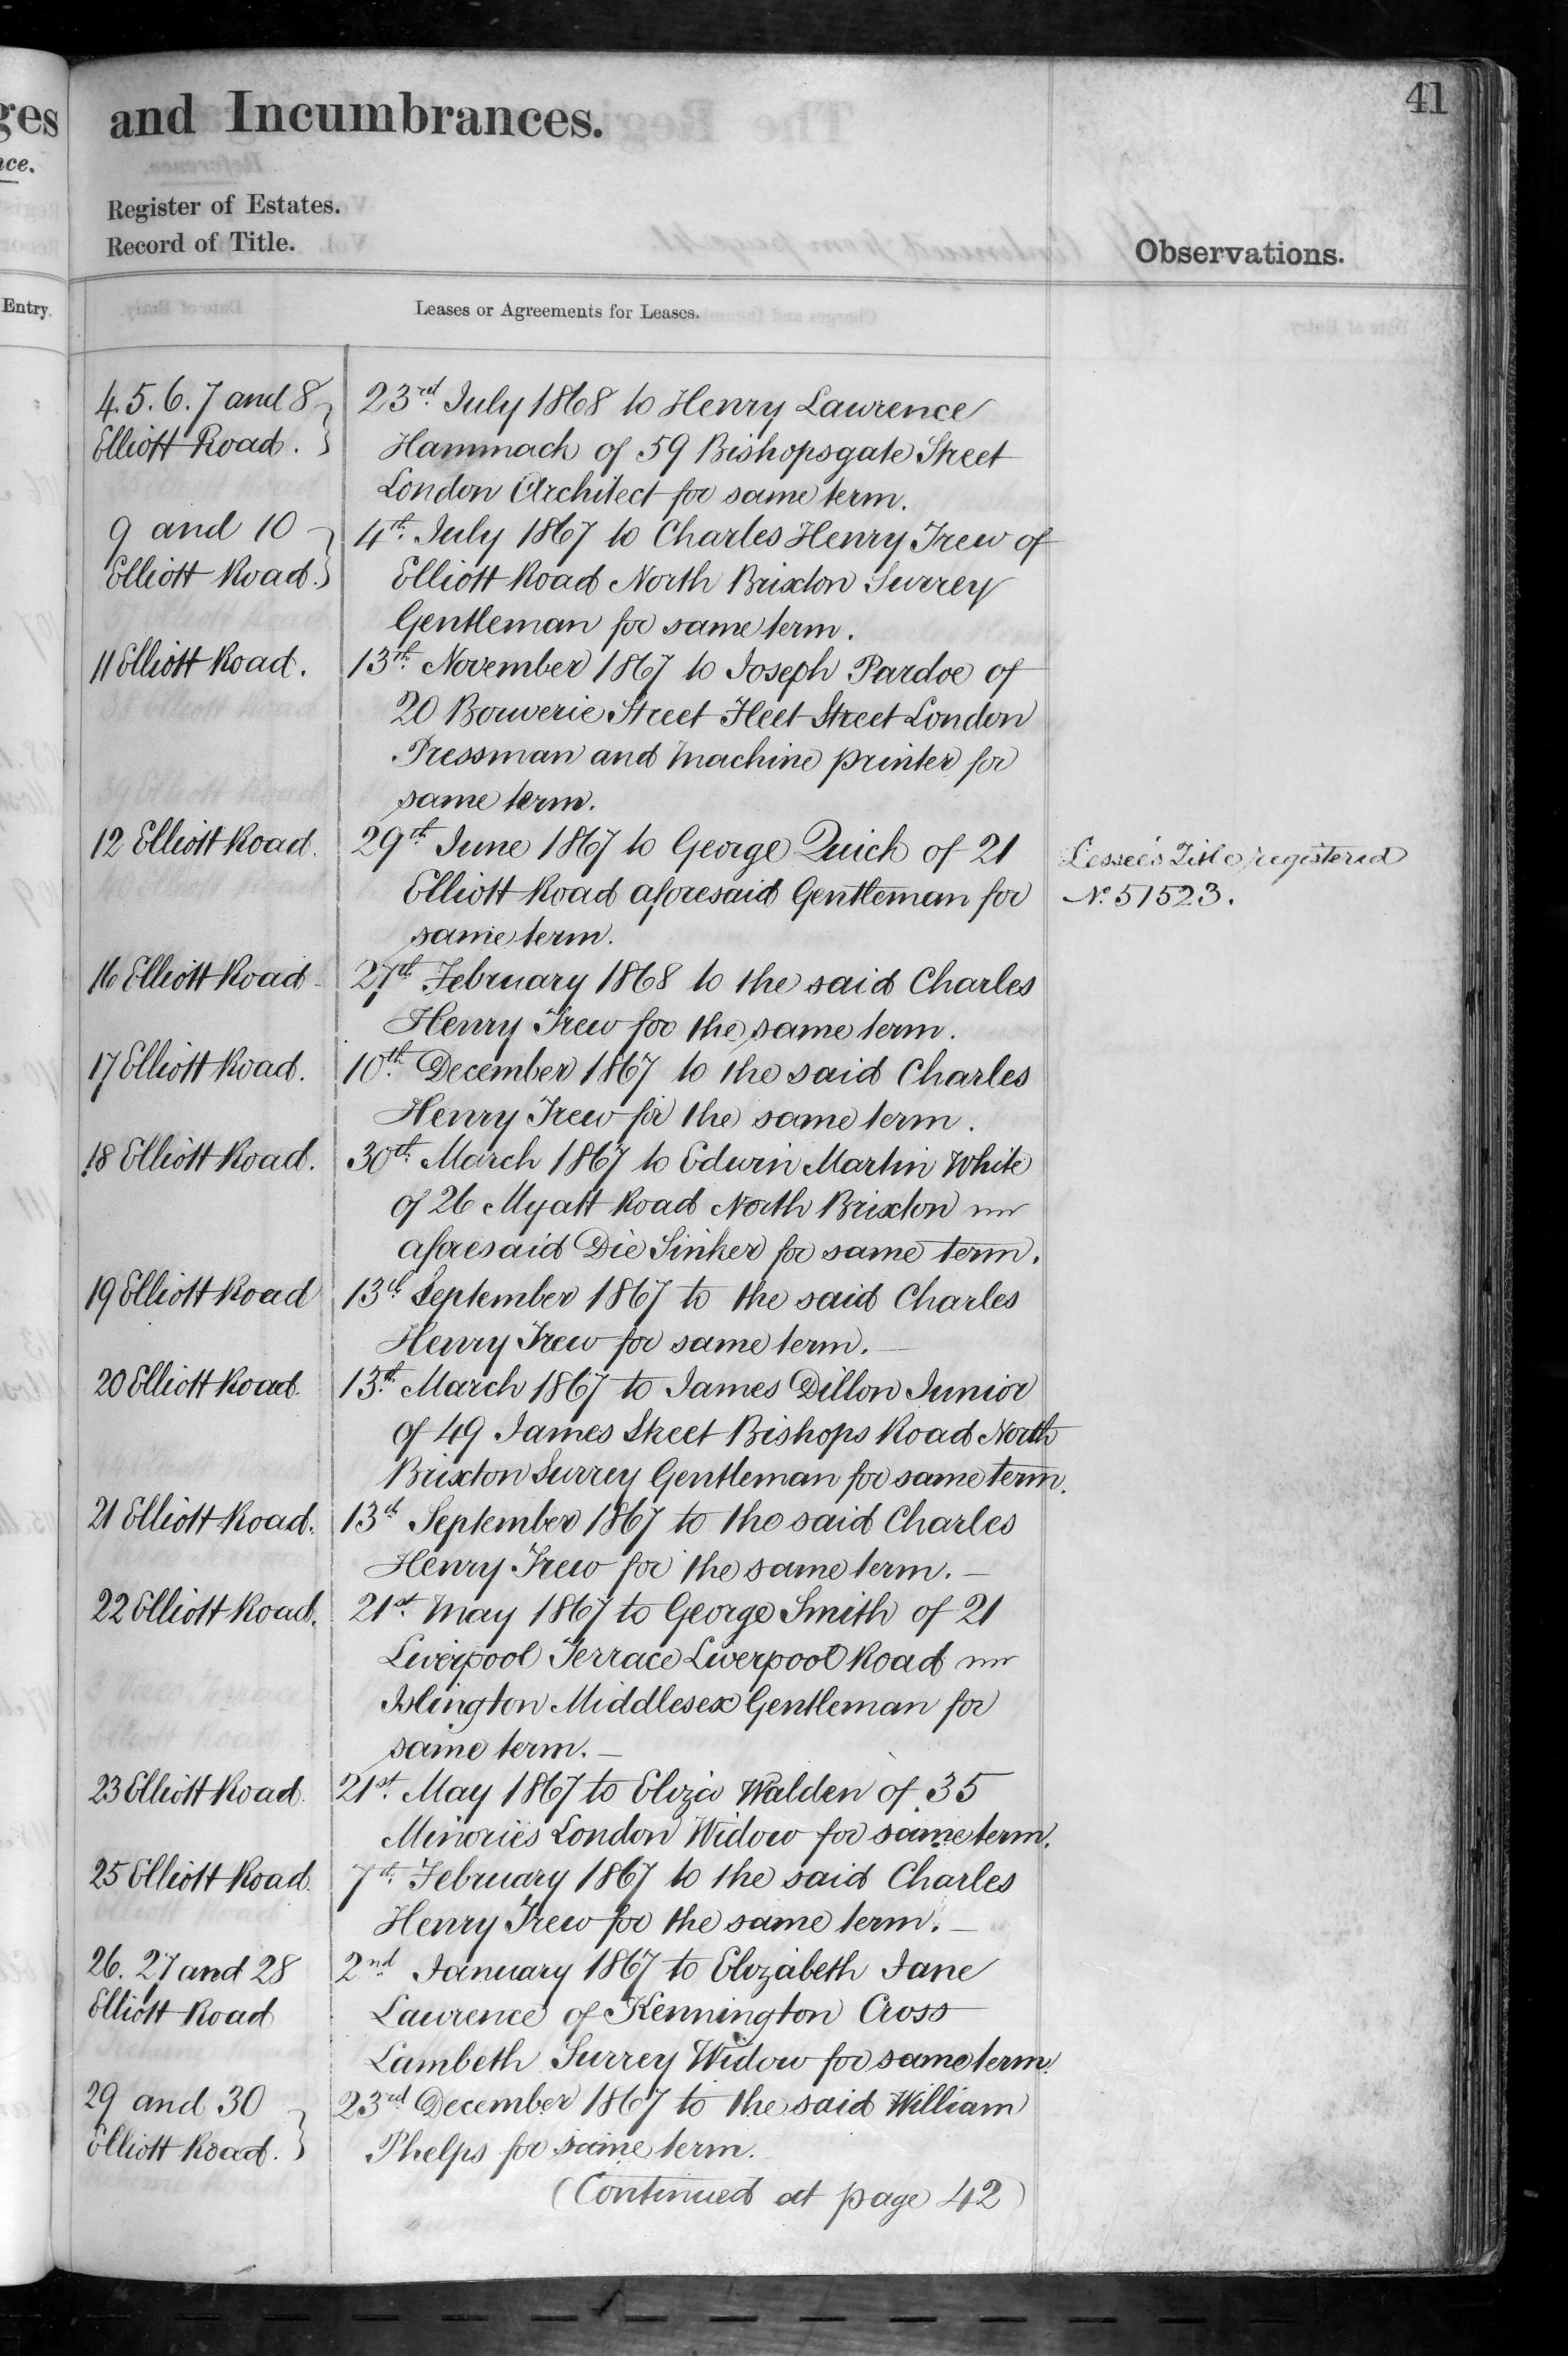 41
ges and Incumbrances.
nce.
Register of Estates.
Record of Title.
Observations.
Entry.
Leases or Agreements for Leases.
4. 5. 6. 7 and 8 } 23rd July 1868 to Henry Lawrence
Elliott Road. Hammach of 59 Bishopsgate Street
London Architect for same term.
9 and 10 } 4th July 1867 to Charles Henry Trew of
Elliott Road. Elliott Road North Brixton Surrey
Gentleman for same term.
11 Elliott Road. 13th November 1867 to Joseph Pardoe of
20 Bouverie Street Fleet Street London
Pressman and Machine printer for
same term.
12 Elliott Road. 29th June 1867 to George Quich of 21 Lessee's Title registered
Elliott Road aforesaid Gentleman for No. 51523.
same term.
16 Elliott Road 27th February 1868 to the said Charles
Henry Trew for the same term.
17 Elliott Road. 10th December 1867 to the said Charles
Henry Trew for the same term.
18 Elliott Road. 30th March 1867 to Edwin Martin White
of 26 Myatt Road North Brixton
aforesaid Die Sinker for same term.
19 Elliott Road 13th September 1867 to the said Charles
Henry Trew for same term.
20 Elliott Road. 13th March 1867 to James Dillon Junior
of 49 James Street Bishops Road North
Brixton Surrey Gentleman for same term.
21 Elliott Road. 13th September 1867 to the said Charles
Henry Trew for the same term.
22 Elliott Road. 21st May 1867 to George Smith of 21
Liverpool Terrace Liverpool Road
Islington Middlesex Gentleman for
same term.
23 Elliott Road. 21st May 1867 to Eliza Walden of 35
Minories London Widow for same term.
25 Elliott Road. 7th February 1867 to the said Charles
Henry Trew for the same term.
26. 27 and 28 2nd January 1867 to Elizabeth Jane
Elliott Road Lawrence of Kennington Cross
Lambeth Surrey Widow for same term.
29 and 30 } 23rd December 1867 to the said William
Elliott Road. Phelps for same term.
(Continued at page 42)